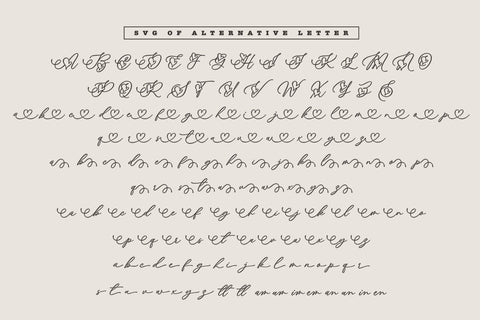 SVG OF ALTERNATIVE LETTER
A B C D E F G H I J K L M N O
P Q R S T U V W X Y Z
a b c d e f g h i j k l m n o p
q r s t u v w x y z
a b c d e f g h i j k l m n o p
q r s t u v w x y z
a b c d e f g h i j k l m n o
p q r s t u v w x y z
a b c d e f g h i j k l m n o p q r
s t u v w x y z tt ll am um im em an un in en